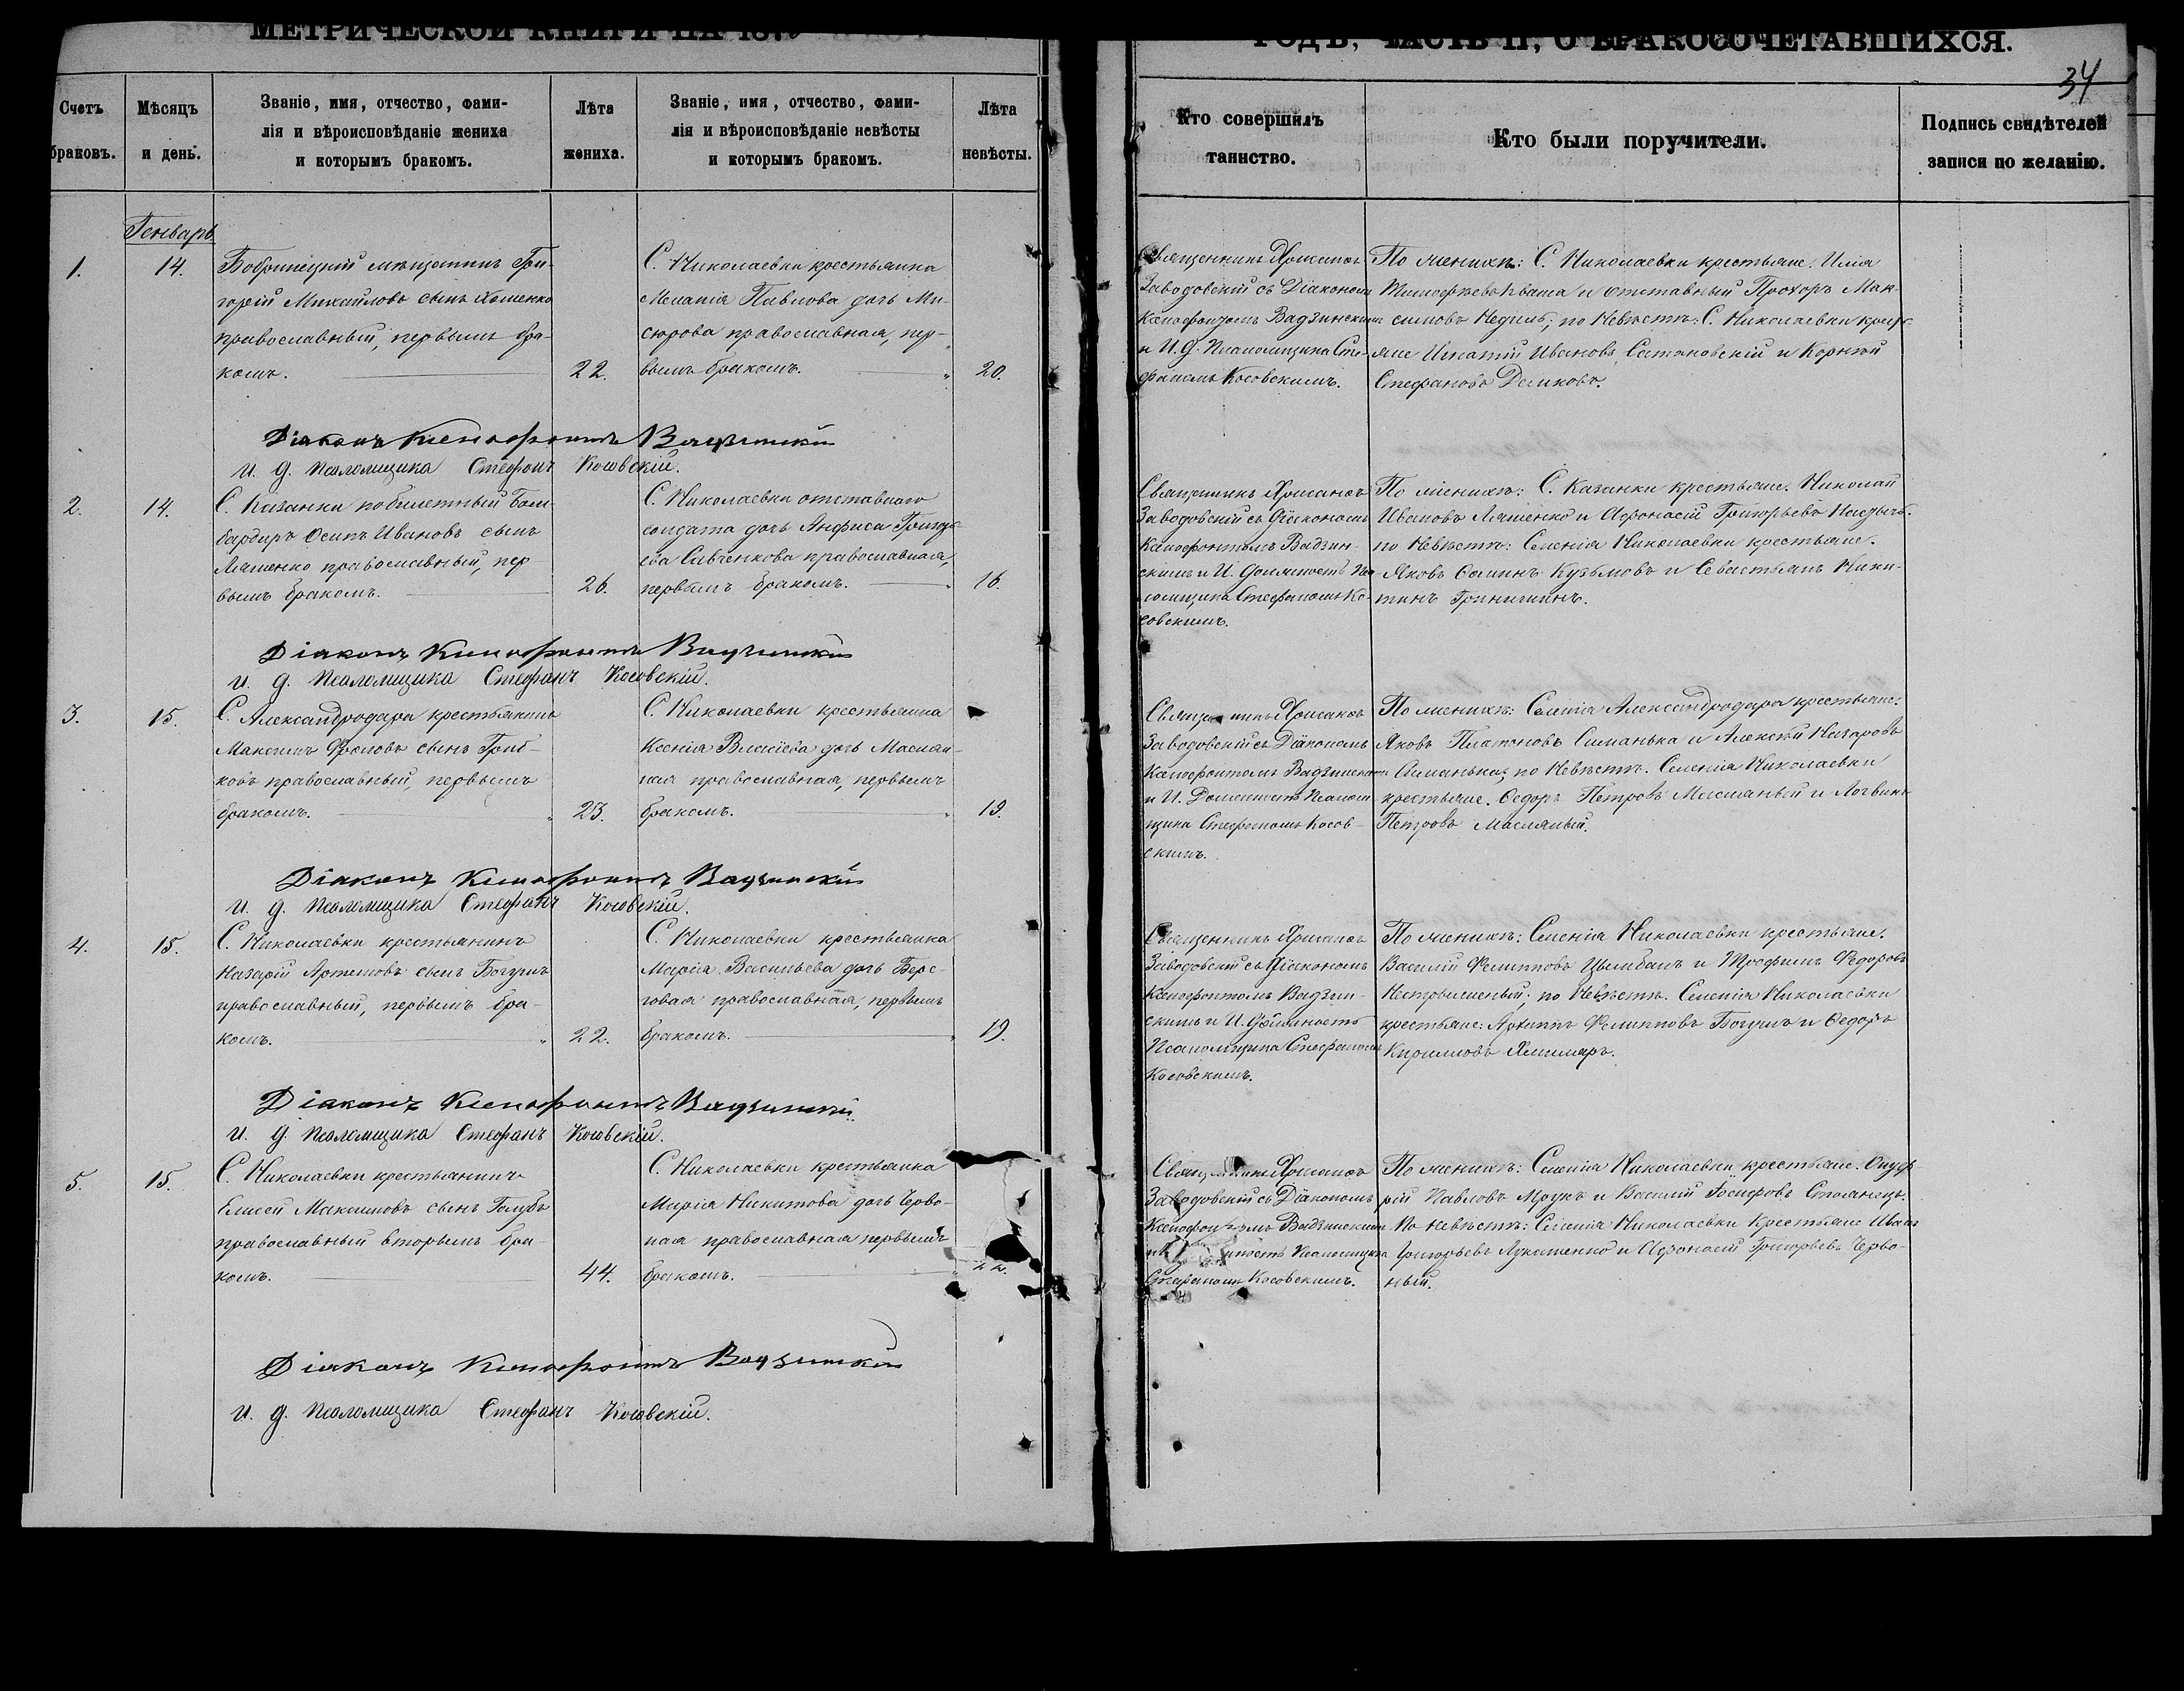 МЕТРИЧЕСКОЙ КНИГИ НА 187
ГОДЪ, ЧАСТЬ II, О БРАКОСОЧЕТАВШИХСЯ.
34
Счетъ
браковъ.
Мѣсяцъ
и день.
Званіе, имя, отчество, фами-
лія и вѣроисповѣданіе жениха
и которымъ бракомъ.
Лѣта
жениха.
Званіе, имя, отчество, фами-
лія и вѣроисповѣданіе невѣсты
и которымъ бракомъ.
Лѣта
невѣсты.
Кто совершилъ
таинство.
Кто были поручители.
Подпись свидѣтелей
записи по желанію.
Генварь
1.
14.
Бобринецкій мѣщанинъ Гри-
горій Михайловъ сынъ Хоменко
православный, первымъ бра-
комъ.
22.
С. Николаевки крестьянка
Меланія Павлова дочь Ми-
сюрова православная, пер-
вымъ бракомъ.
20.
Священникъ Хрисанѳъ
Заводовскій съ Діакономъ
Ксенофонтомъ Вадзинскимъ
и И. Д. Псаломщика Сте-
фаномъ Косовскимъ.
По женихѣ: С. Николаевки крестьяне. Илія
Тимофѣевъ Кваша и отставный Прохоръ Мак-
симовъ по Невѣстѣ: С. Николаевки крес-
яне Игнатій Ивановъ и Корнѣй
Стефановъ
Діаконъ Ксенофонтъ Вадзинскій
И. д. Псаломщика Стефанъ Косовскій.
2.
14.
С. Казанки побилетный Бом-
бардиръ Осипъ Ивановъ сынъ
Ляшенко православный, пер-
вымъ бракомъ.
26.
С. Николаевки отставнаго
солдата дочь Анфиса Григорь-
ева Савченкова православная,
первымъ бракомъ.
16.
Священникъ Хрисанѳъ
Заводовскій съ Діакономъ
Ксенофонтомъ Вадзин-
скимъ и И. Должность Пса-
ломщика Стефаномъ Ко-
совскимъ.
По женихѣ: С. Казанки крестьяне. Николай
Ивановъ Ляшенко и Афонасій Григорьевъ
по Невѣстѣ: Селенія Николаевки крестьяне.
Яковъ Кузьмовъ и Севастьянъ Ники-
тинъ
Діаконъ Ксенофонтъ Вадзинскій
И. д. Псаломщика Стефанъ Косовскій.
3.
15.
С. Александродара крестьянинъ
Максимъ Фроловъ сынъ Гриб-
ковъ православный, первымъ
бракомъ.
23.
С. Николаевки крестьянка
Ксенія Власіева дочь Маслян-
ная православная, первымъ
бракомъ.
19.
Священникъ Хрисанѳъ
Заводовскій съ Діакономъ
Ксенофонтомъ Вадзинскимъ
и И. Должность Псалом-
щика Стефаномъ Косов-
скимъ.
По женихѣ: Селенія Александродара крестьяне:
Яковъ Платоновъ Симанька и Алексѣй Назаровъ
Симанька; по Невѣстѣ. Селенія Николаевки
крестьяне. Ѳедоръ Петровъ Масляный и Логвинъ
Петровъ Масляный.
Діаконъ Ксенофонтъ Вадзинскій
И. д. Псаломщика Стефанъ Косовскій.
4.
15.
С. Николаевки крестьянинъ
Назарій Артемовъ сынъ Богушъ
православный, первымъ бра-
комъ.
22.
С. Николаевки крестьянка
Марія Васильева дочь Бере-
говая православная, первымъ
бракомъ.
19.
Священникъ Хрисанѳъ
Заводовскій съ Діакономъ
Ксенофонтомъ Вадзин-
скимъ и И. Должность
Псаломщика Стефаномъ
Косовскимъ.
По женихѣ: Селенія Николаевки крестьяне.
Василій Филипповъ Цымбалъ и Трофимъ Федоровъ
по Невѣстѣ. Селенія Николаевки
крестьяне: Архиппъ Филипповъ Богушъ и Ѳедоръ
Кирилловъ
Діаконъ Ксенофонтъ Вадзинскій
И. д. Псаломщика Стефанъ Косовскій.
5.
15.
С. Николаевки крестьянинъ
Елисей Максимовъ сынъ Голубъ
православный вторымъ бра-
комъ.
44.
С. Николаевки крестьянка
Марія Никитова дочь Черво-
ная православная первымъ
бракомъ.
22.
Священникъ Хрисанѳъ
Заводовскій съ Діакономъ
Ксенофонтомъ Вадзинскимъ
Псаломщика
Стефаномъ Косовскимъ.
По женихѣ: Селенія Николаевки крестьяне. Онуф-
рій Павловъ и Василій Іосифовъ Столянецъ.
По невѣстѣ: Селенія Николаевки Крестьяне Иванъ
Григорьевъ Лукашенко и Афонасій Григорьевъ Черво-
ный.
Діаконъ Ксенофонтъ Вадзинскій
И. д. Псаломщика Стефанъ Косовскій.